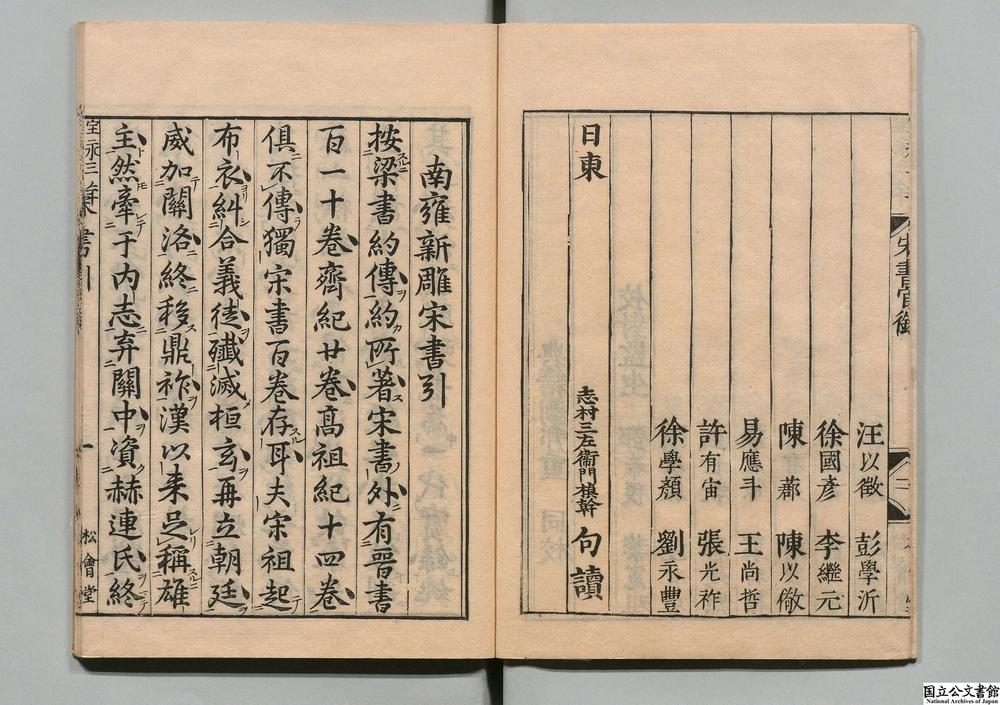 宋書官銜
二
汪以徵 彭學沂
徐國彥 李繼元
陳䣭 陳以儆
易應斗 王尚哲
許有宙 張光祚
徐學顏 劉永豐
日東 志村三左衞門槙幹 句讀
南雍新雕宋書引
按梁書約傳約所著宋書外有晉書
百一十卷齊紀廿卷高祖紀十四卷
俱不傳獨宋書百卷存耳夫宋祖起
布衣糾合義徒殲滅桓玄再立朝廷
威加關洛終移鼎祚漢以来足稱雄
主然牽于内志弃關中資赫連氏終
宝永三年
書引
一
松會堂
国立公文書館
National Archives of Japan